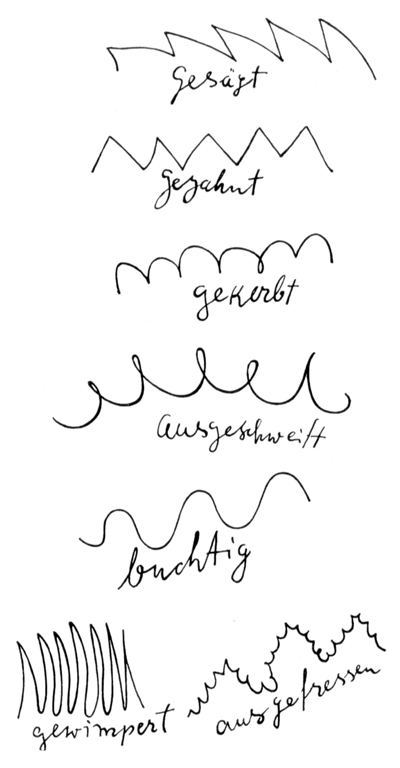 gesägt
gezahnt
gekerbt
ausgeschweift
buchtig
gewimpert
ausgefressen